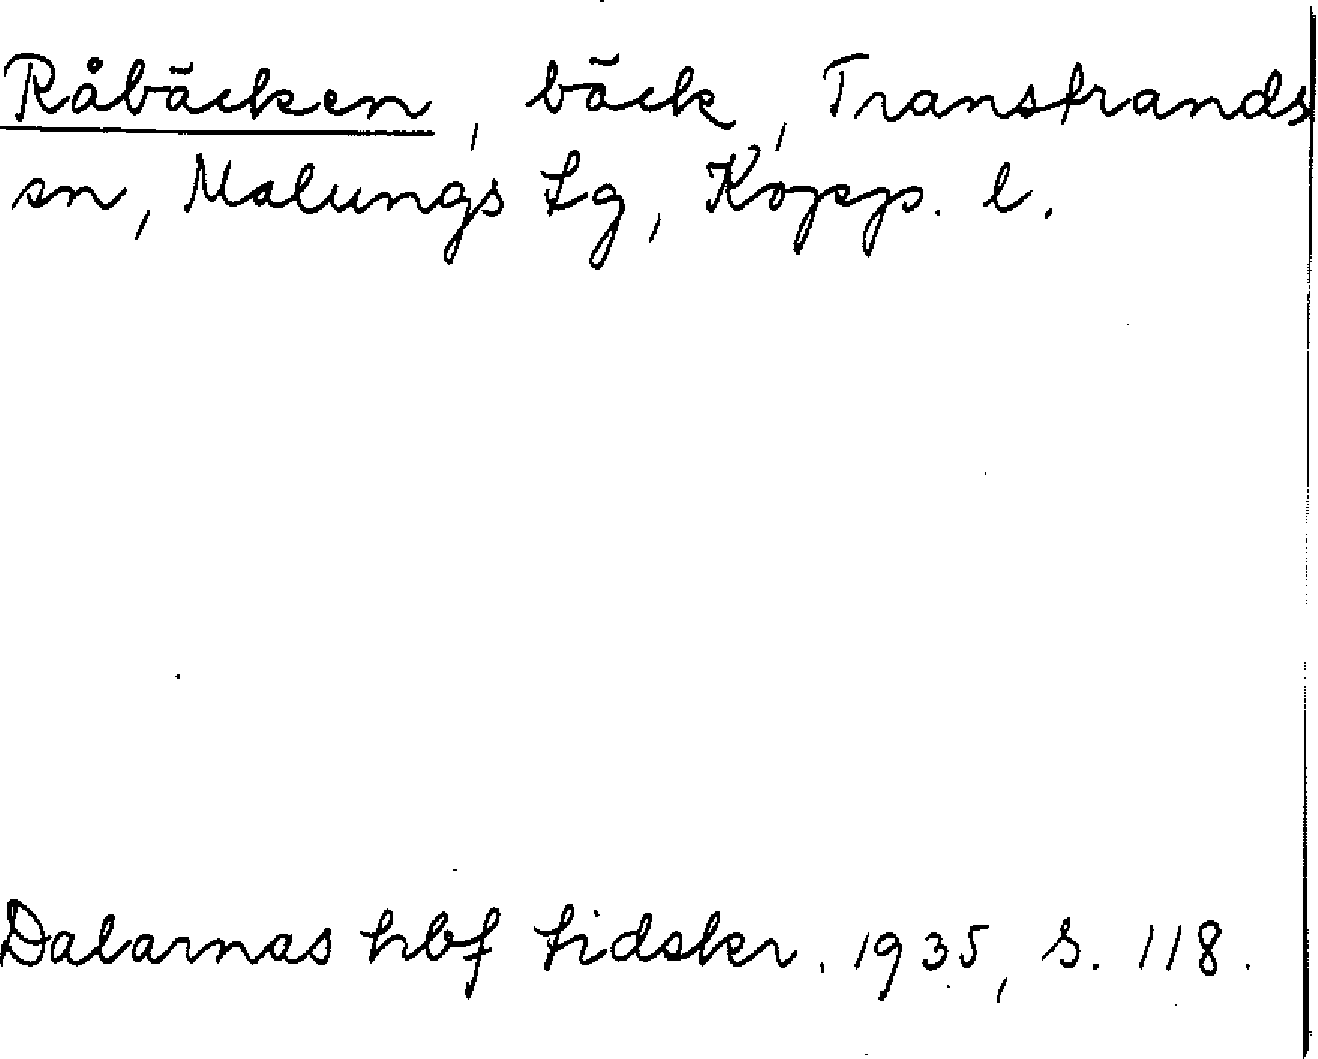 Råbäcken, bäck, Transtrands
sn, Malungs tg, Kopp. l.
Dalarnas hbf tidskr. 1935, s. 118.